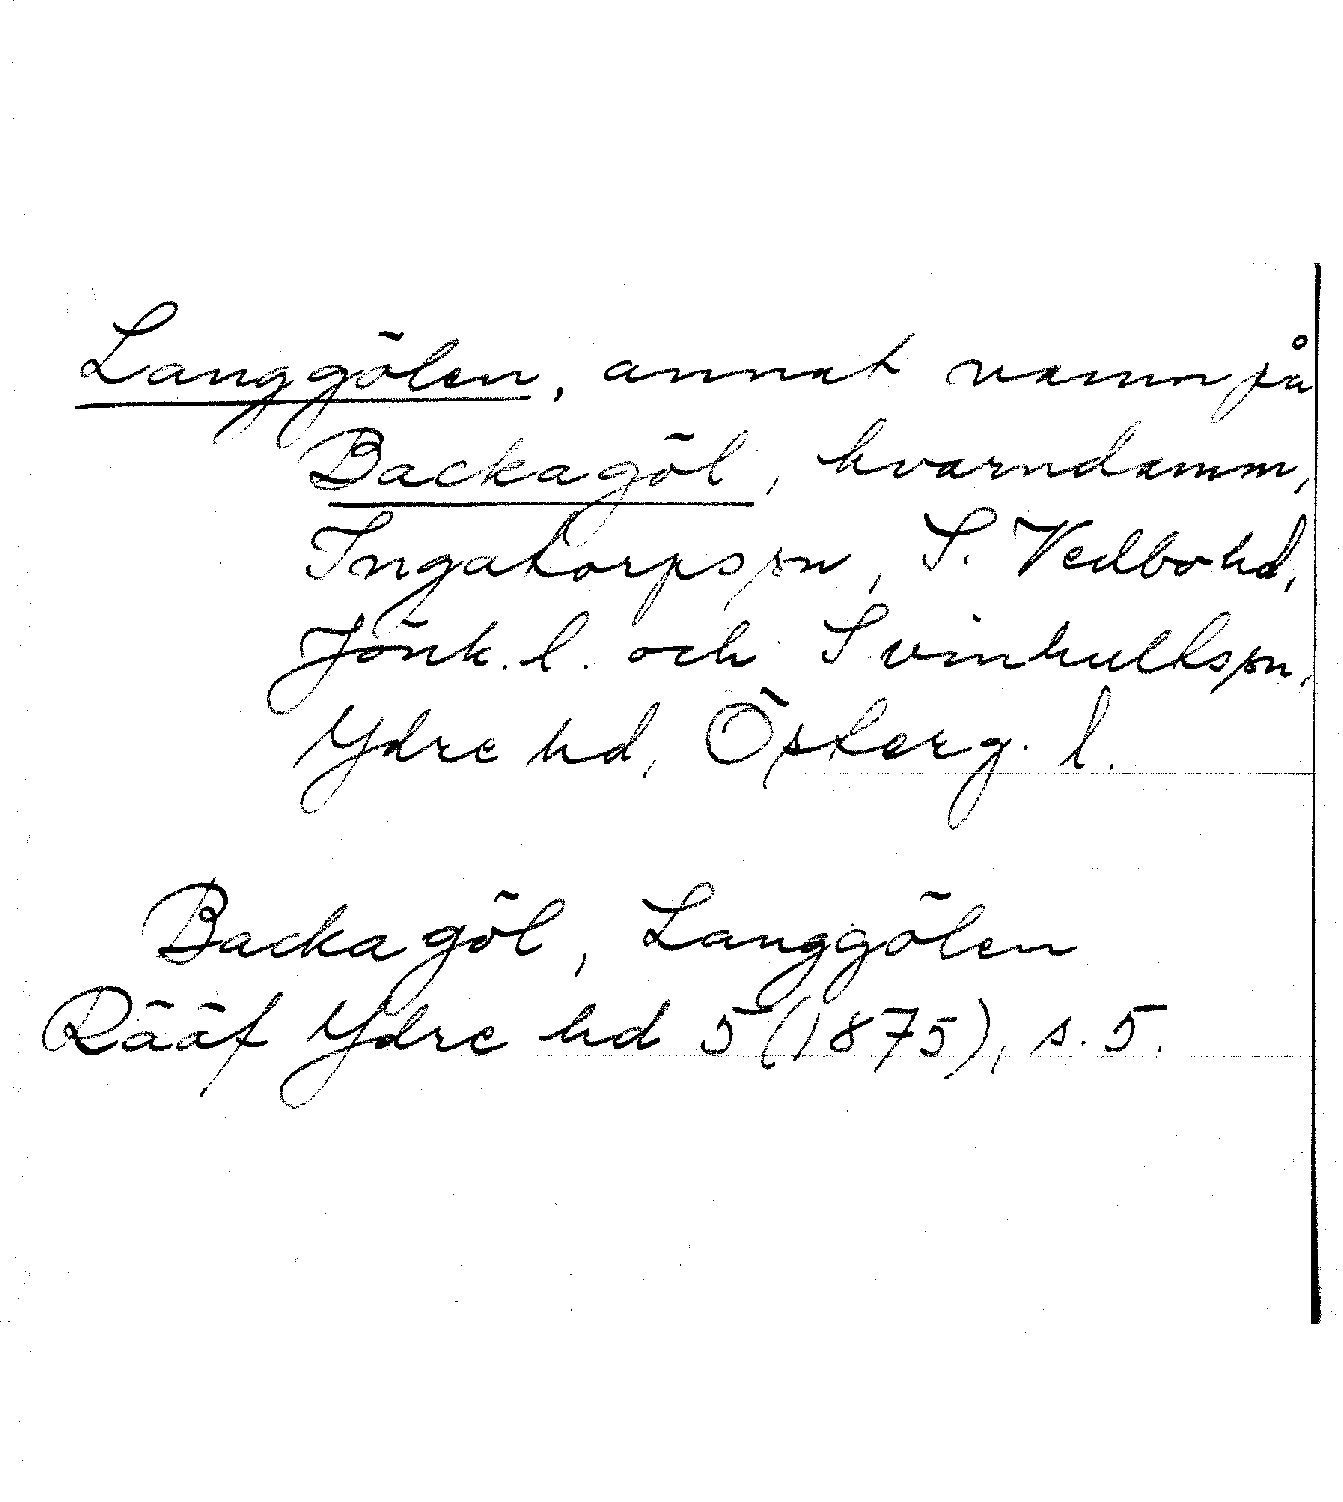 Langgölen, annat namn på
Backagöl, kvarndamm,
Ingatorpssn, S. Vedbohd,
Jönk. l. och Svinhultssn,
Ydre hd, Österg. l.
Backagöl, Langgölen
Rääf Ydre hd 5 (1875), s. 5.